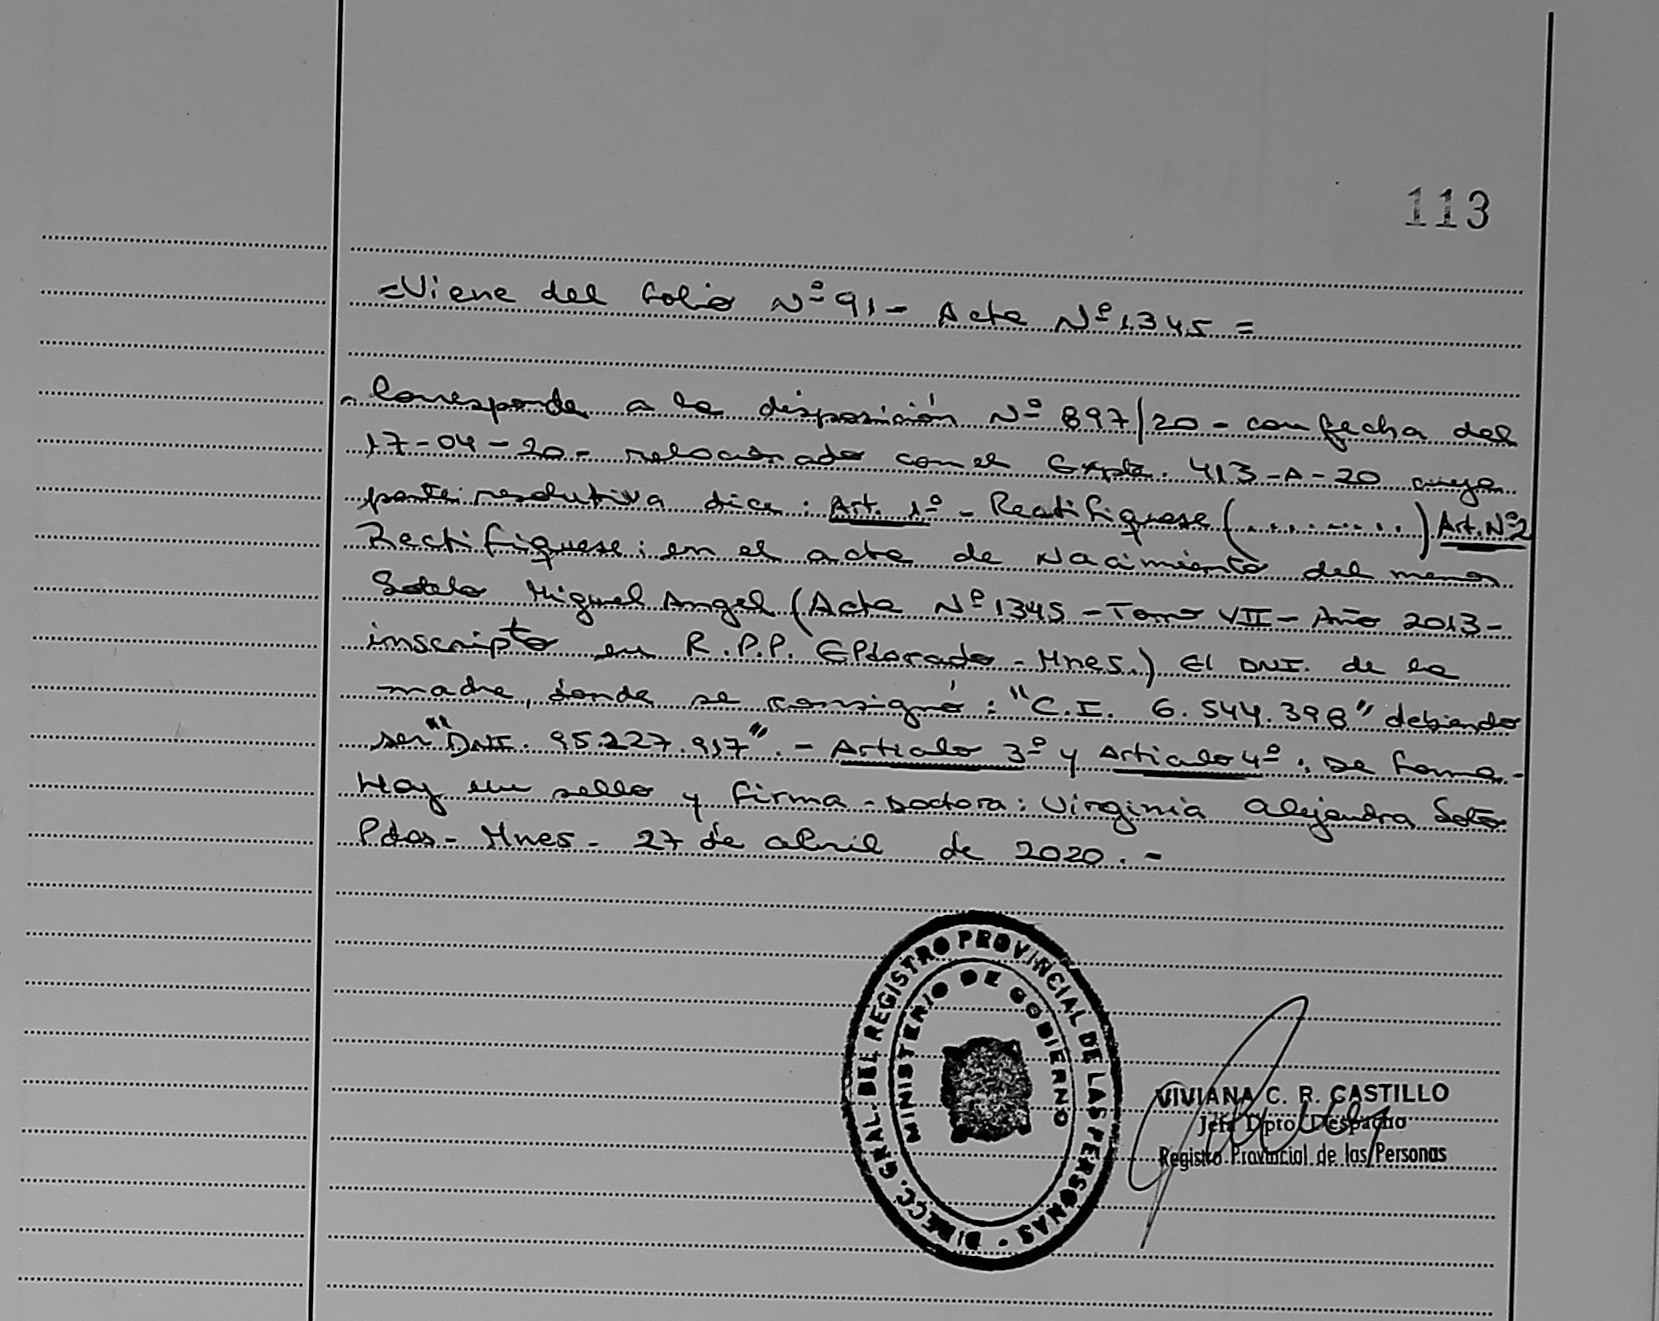 113
=Viene del folio Nº 91 - Acta Nº 1345 =
Corresponde a la disposición Nº 897/20 - con fecha del
17-04-20 - relacionado con el Expte. 413-A-20 cuya
parte resolutiva dice: Art. 1º - Rectifiquese (............) Art. Nº 2
Rectifiquese: en el acta de Nacimiento del menor
Sotelo Miguel Angel (Acta Nº 1345 - Tomo VII - Año 2013 -
inscripto en R.P.P. ElDorado - Mnes.) El DNI. de la
madre, donde se consignó: "C.I. 6.544.398" debiendo
ser "DNI. 95.227.917". - Articulo 3º y Articulo 4º: De forma.-
Hay un sello y firma - Doctora: Virginia Alejandra Soto
Pdas - Mnes - 27 de abril de 2020. -
DIRECC. GRAL. DEL REGISTRO PROVINCIAL DE LAS PERSONAS
MINISTERIO DE GOBIERNO
VIVIANA C. R. CASTILLO
Jefa Dpto Despacho
Registro Provincial de las Personas